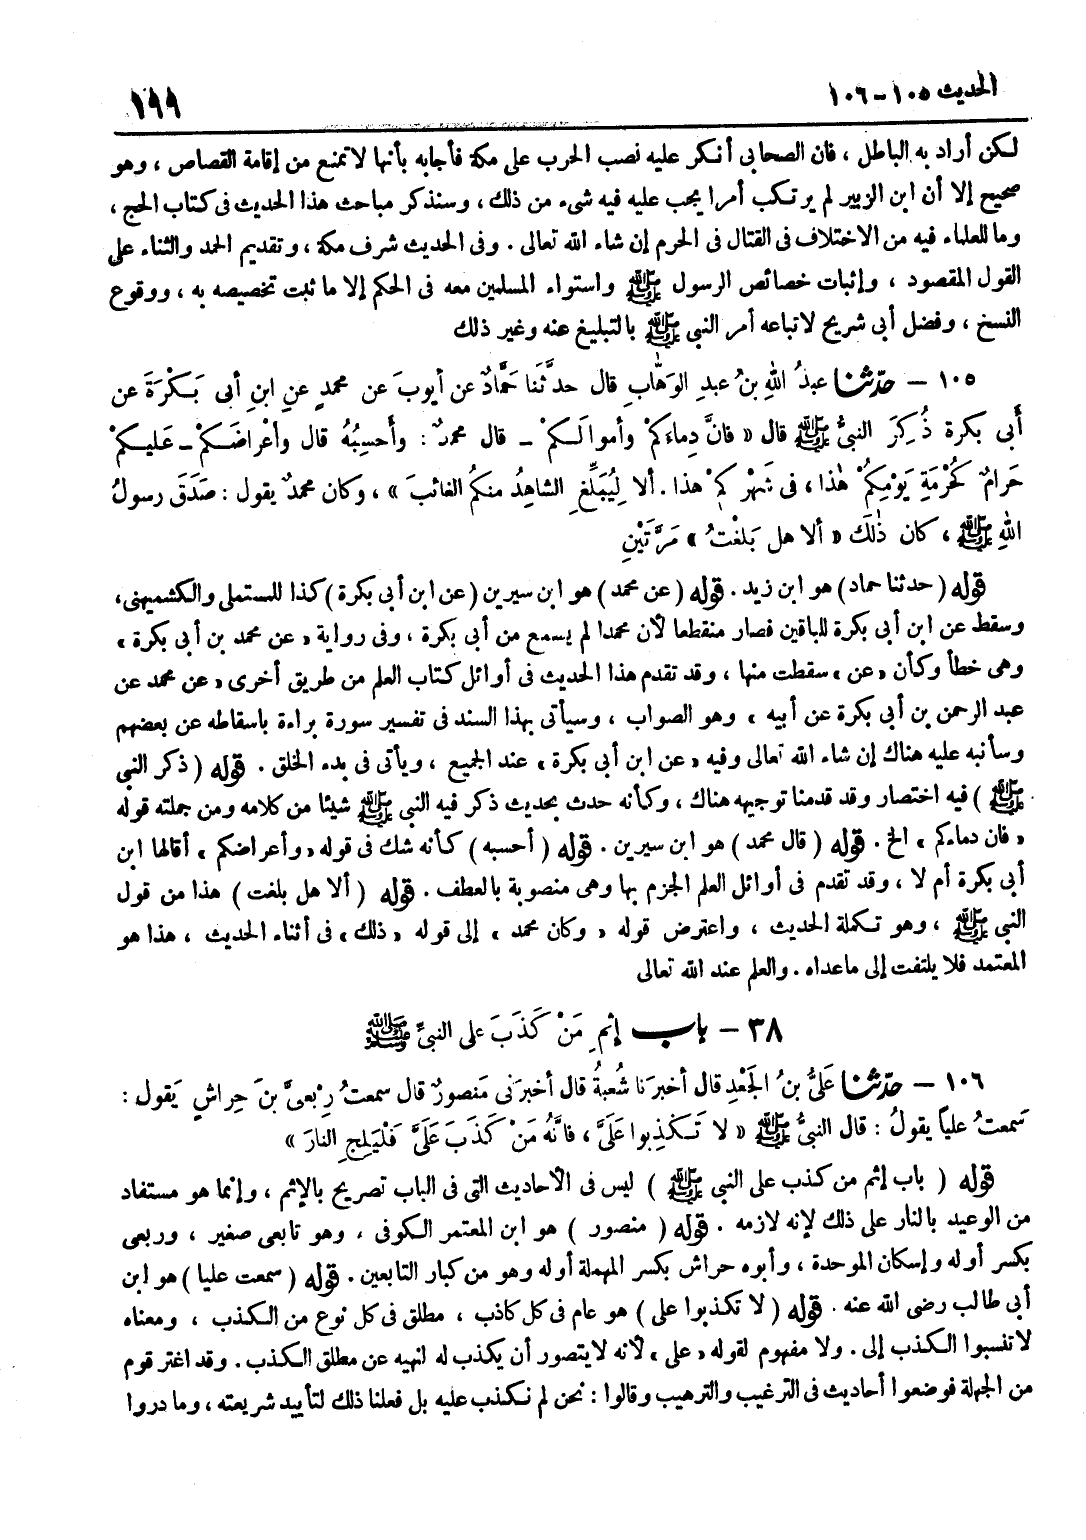 الحديث ١٠٥ – ١٠٦
١٩٩
لكن أراد به الباطل ، فان الصحابى أنكر عليه نصب الحرب على مكة فأجابه بأنها لا تمنع من إقامة القصاص ، وهو
صحيح إلا أن ابن الزبير لم يرتكب أمرا يجب عليه فيه شىء من ذلك ، وسنذكر مباحث هذا الحديث فى كتاب الحج ،
وما للعلماء فيه من الاختلاف فى القتال فى الحرم إن شاء الله تعالى . وفى الحديث شرف مكة ، وتقديم الحمد والثناء على
القول المقصود ، وإثبات خصائص الرسول ﷺ واستواء المسلمين معه فى الحكم إلا ما ثبت تخصيصه به ، ووقوع
النسخ ، وفضل أبى شريح لاتباعه أمر النبى ﷺ بالتبليغ عنه وغير ذلك
١٠٥ – حدّثنا عبدُ اللهِ بنُ عبدِ الوَهّابِ قال حدَّثَنا حَمَّادٌ عن أيوبَ عن محمدٍ عنِ ابنِ أبى بَكْرَةَ عن
أَبى بكرة ذُكِرَ النبىُّ ﷺ قال « فانَّ دِماءَكمْ وأموالَكمْ – قال محمدٌ : وأَحسِبُهُ قال وأَعْراضَكمْ – عَليكمْ
حَرامٌ كَحُرْمَةِ يَوْمِكمْ هٰذا ، فى شَهْرِكمْ هذا . ألا لِيُبَلِّغِ الشاهِدُ منكمُ الغائبَ » ، وكان محمدٌ يقول : صَدَقَ رسولُ
اللهِ ﷺ ، كان ذٰلكَ « ألا هل بَلغْتُ » مَرَّتَيْنِ
قوله ( حدثنا حماد ) هو ابن زيد . قوله ( عن محمد ) هو ابن سيرين ( عن ابن أبى بكرة ) كذا للمستملى والكشميهنى ،
وسقط عن ابن أبى بكرة للباقين فصار منقطعا لأن محمدا لم يسمع من أبى بكرة ، وفى رواية « عن محمد بن أبى بكرة »
وهى خطأ وكأن « عن » سقطت منها ، وقد تقدم هذا الحديث فى أوائل كتاب العلم من طريق أخرى « عن محمد عن
عبد الرحمن بن أبى بكرة عن أبيه » وهو الصواب ، وسيأتى بهذا السند فى تفسير سورة براءة باسقاطه عن بعضهم
وسأنبه عليه هناك إن شاء الله تعالى وفيه « عن ابن أبى بكرة » عند الجميع ، ويأتى فى بدء الخلق . قوله ( ذكر النبى
ﷺ ) فيه اختصار وقد قدمنا توجيهه هناك ، وكأنه حدث بحديث ذكر فيه النبى ﷺ شيئا من كلامه ومن جملته قوله
« فان دماءكم » الخ . قوله ( قال محمد ) هو ابن سيرين . قوله ( أحسبه ) كأنه شك فى قوله « وأعراضكم » أقالها ابن
أبى بكرة أم لا ، وقد تقدم فى أوائل العلم الجزم بها وهى منصوبة بالعطف . قوله ( ألا هل بلغت ) هذا من قول
النبى ﷺ ، وهو تكملة الحديث ، واعترض قوله « وكان محمد » إلى قوله « ذلك » فى أثناء الحديث ، هذا هو
المعتمد فلا يلتفت إلى ماعداه . والعلم عند الله تعالى
٣٨ – باب إثمِ مَنْ كَذَبَ على النبىِّ ﷺ
١٠٦ – حدّثنا عَلىُّ بنُ الجَعْدِ قال أخبرَنا شُعبةُ قال أخبرَنى مَنصورٌ قال سمعتُ رِبْعىَّ بنَ حِراشٍ يَقول :
سَمعتُ علياً يقولُ : قال النبىُّ ﷺ « لا تَكْذِبوا عَلَىَّ ، فانَّهُ مَنْ كَذَبَ عَلَىَّ فَلْيَلِجِ النارَ »
قوله ( باب إثم من كذب على النبى ﷺ ) ليس فى الأحاديث التى فى الباب تصريح بالإثم ، وإنما هو مستفاد
من الوعيد بالنار على ذلك لإنه لازمه . قوله ( منصور ) هو ابن المعتمر الكوفى ، وهو تابعى صغير ، وربعى
بكسر أوله وإسكان الموحدة ، وأبوه حراش بكسر المهملة أوله وهو من كبار التابعين . قوله ( سمعت عليا ) هو ابن
أبى طالب رضى الله عنه . قوله ( لا تكذبوا على ) هو عام فى كل كاذب ، مطلق فى كل نوع من الكذب ، ومعناه
لا تنسبوا الكذب إلى . ولا مفهوم لقوله « على » لأنه لا يتصور أن يكذب له لنهيه عن مطلق الكذب . وقد اغتر قوم
من الجهلة فوضعوا أحاديث فى الترغيب والترهيب وقالوا : نحن لم نكذب عليه بل فعلنا ذلك لتأييد شريعته ، وما دروا